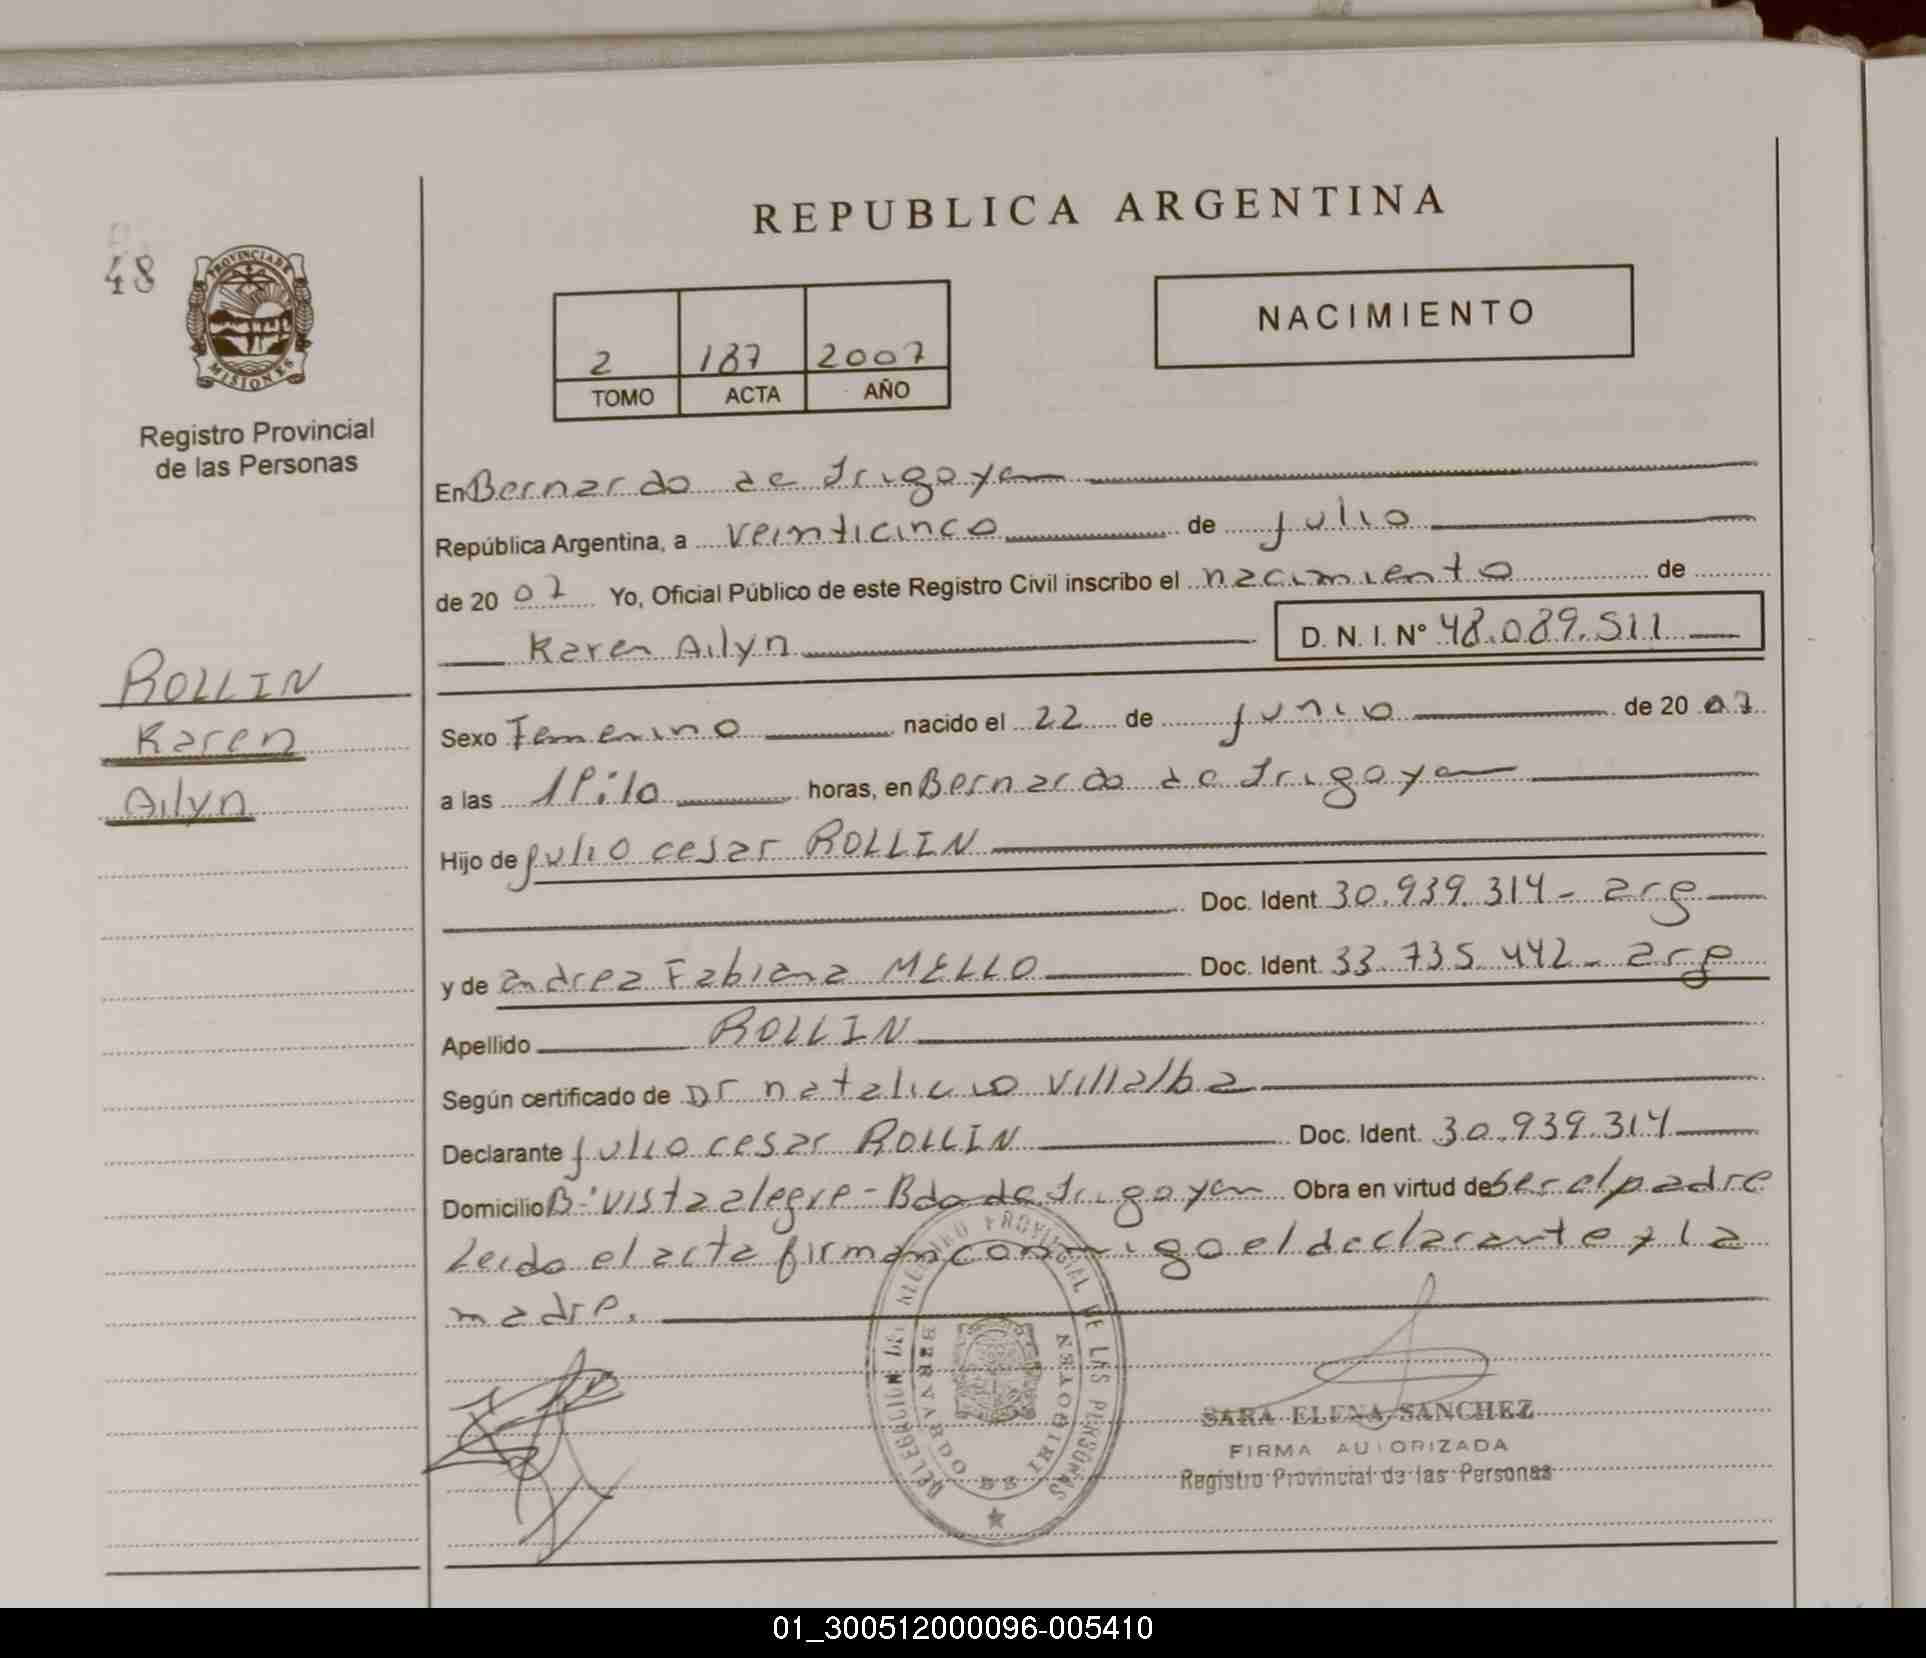 REPUBLICA ARGENTINA
48
PROVINCIA DE
MISIONES
Registro Provincial
de las Personas
NACIMIENTO
2 187 2007
TOMO ACTA AÑO
En Bernardo de Irigoyen
República Argentina, a veinticinco de julio
de 20 07 Yo, Oficial Público de este Registro Civil inscribo el nacimiento de
Karen Ailyn D. N. I. Nº 48.089.511
ROLLIN
Karen
Ailyn
Sexo Femenino nacido el 22 de junio de 20 07
a las horas, en Bernardo de Irigoyen
Hijo de julio cesar ROLLIN
Doc. Ident. 30.939.314- arg
y de andrea Fabiana MELLO Doc. Ident. 33.735.442- arg
Apellido ROLLIN
Según certificado de Dr natalicio Villalba
Declarante julio cesar ROLLIN Doc. Ident. 30.939.314
Domicilio B· vista alegre - Bdo de Irigoyen Obra en virtud de ser el padre
Leido el acta firman conmigo el declarante y la
madre.
DELEGACION DEL REGISTRO PROVINCIAL DE LAS PERSONAS
BERNARDO DE IRIGOYEN
SARA ELENA SANCHEZ
FIRMA AUTORIZADA
Registro Provincial de las Personas
01_300512000096-005410